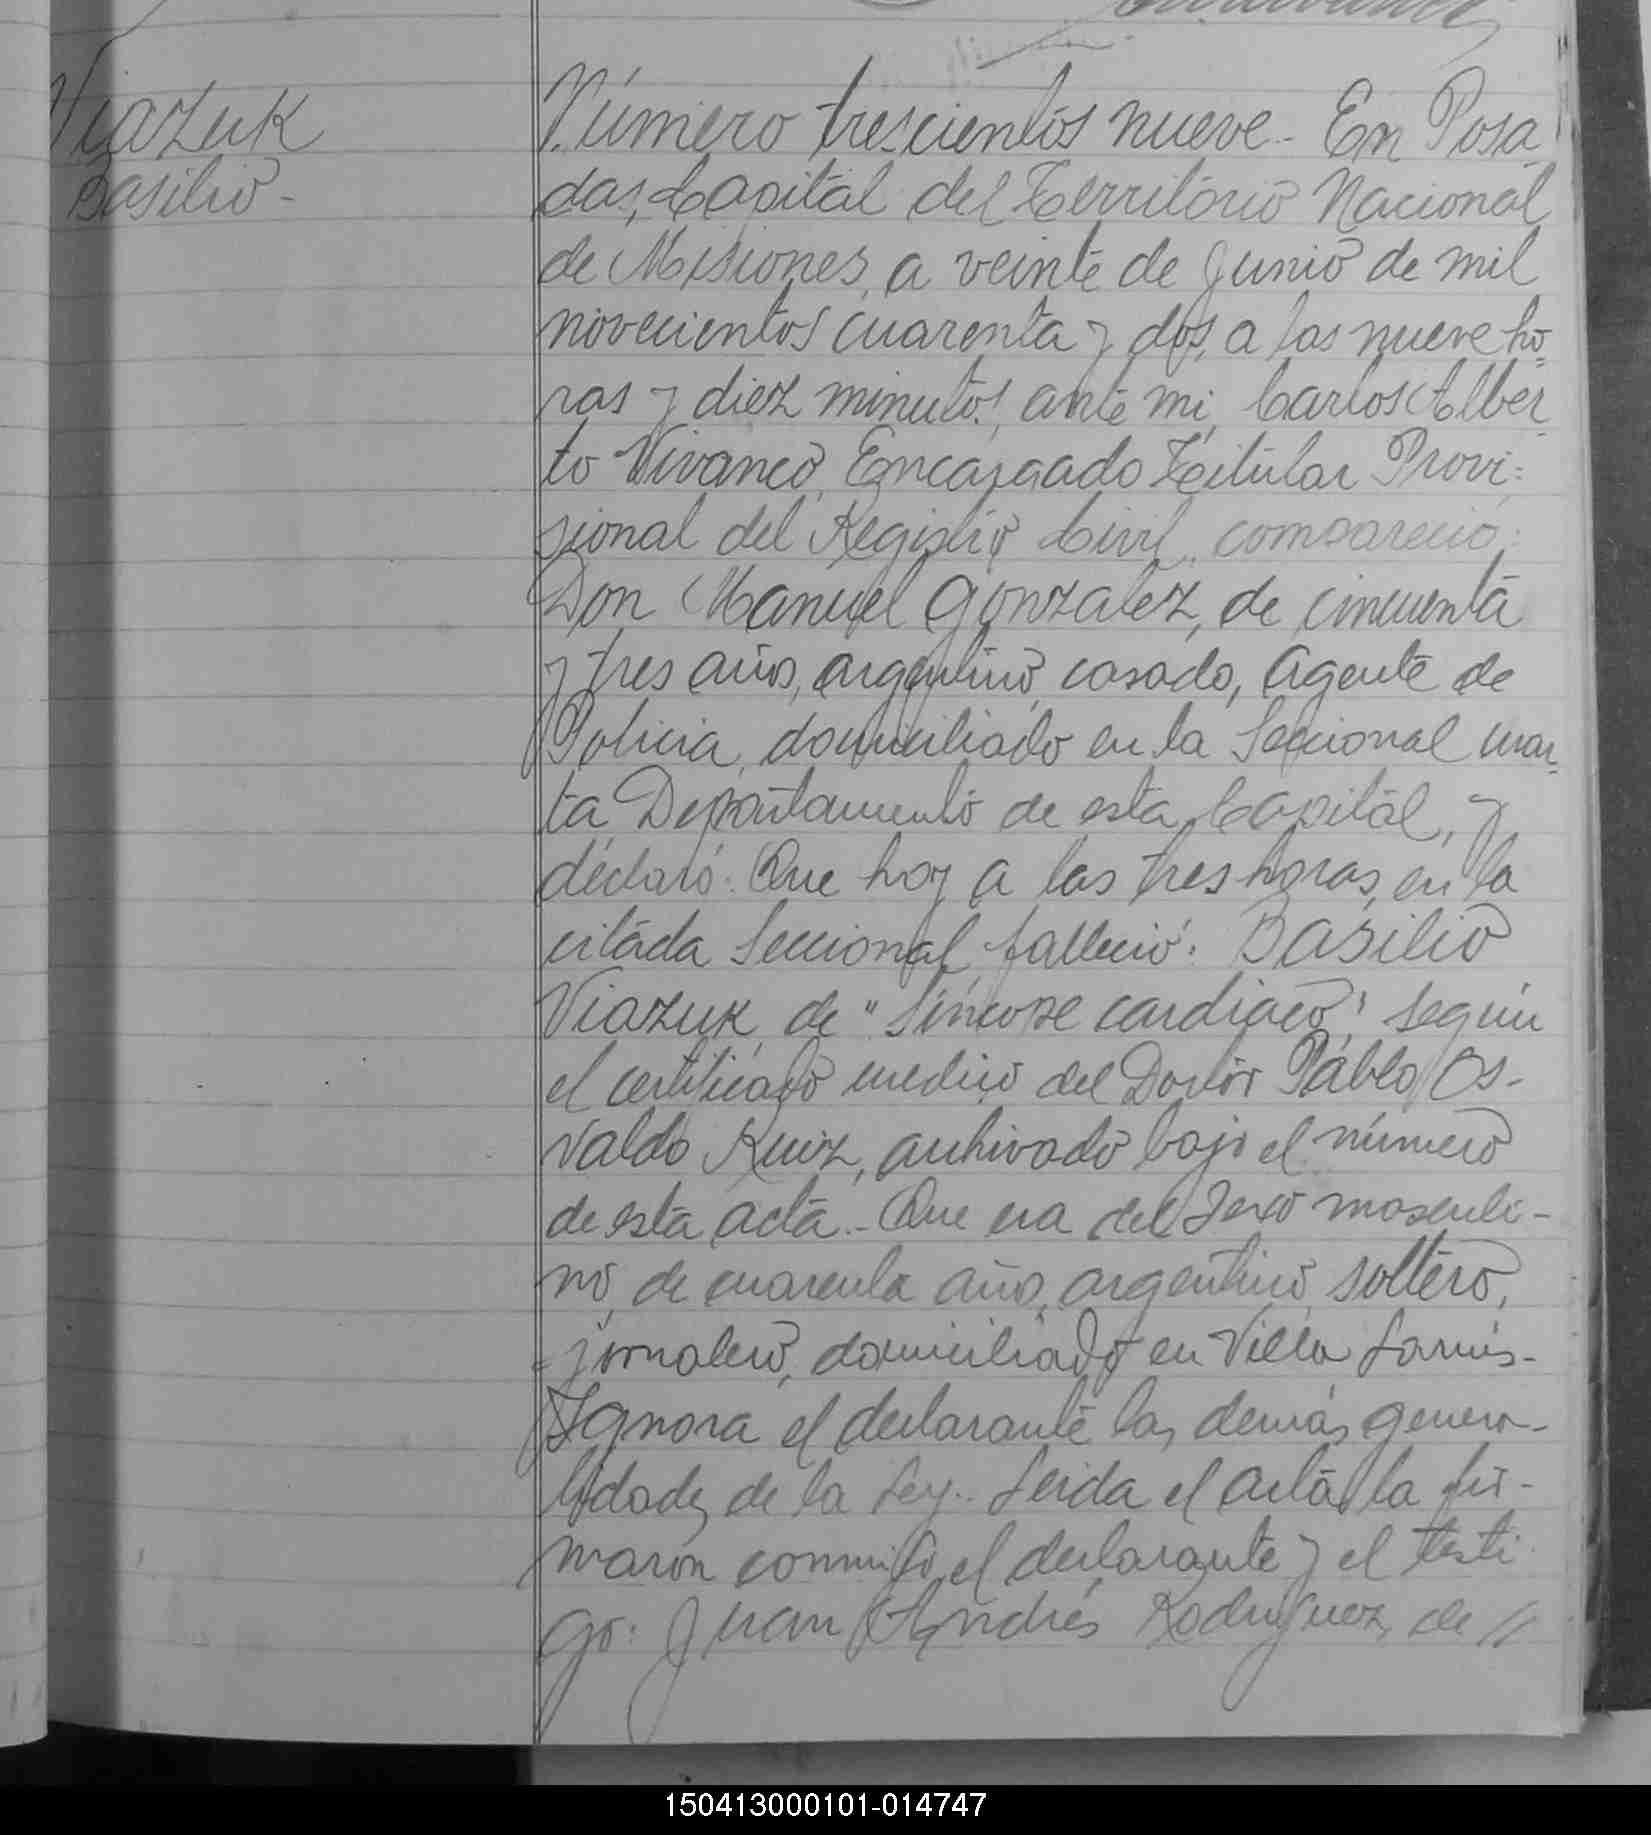 Viazuk
Basilio -
Número trescientos nueve - En Posa
das, Capital del Territorio Nacional
de Misiones, a veinte de Junio de mil
novecientos cuarenta y dos, a las nueve ho=
ras y diez minutos, ante mi, Carlos Alber=
to Vivanco, Encargado Titular Provi=
sional del Registro Civil, compareció:
Don Manuel Gonzalez, de cincuenta
y tres años, argentino, casado, agente de
Policia, domiciliado en la Seccional cuar=
ta Departamento de esta Capital, y
declaró: Que hoy a las tres horas, en la
citada Seccional falleció: Basilio
Viazuk, de "Síncope cardiaco", según
el certificado medico del Doctor Pablo Os-
valdo Ruiz, archivado bajo el número
de esta acta.- Que era del sexo masculi-
no, de cuarenta años, argentino, soltero,
jornalero, domiciliado en Villa Lanús-
Ignora el declarante las demás genera-
lidades de la Ley.. Leida el acta, la fir-
maron conmigo, el declarante y el testi
go: Juan Andrés Rodriguez, de //
150413000101-014747